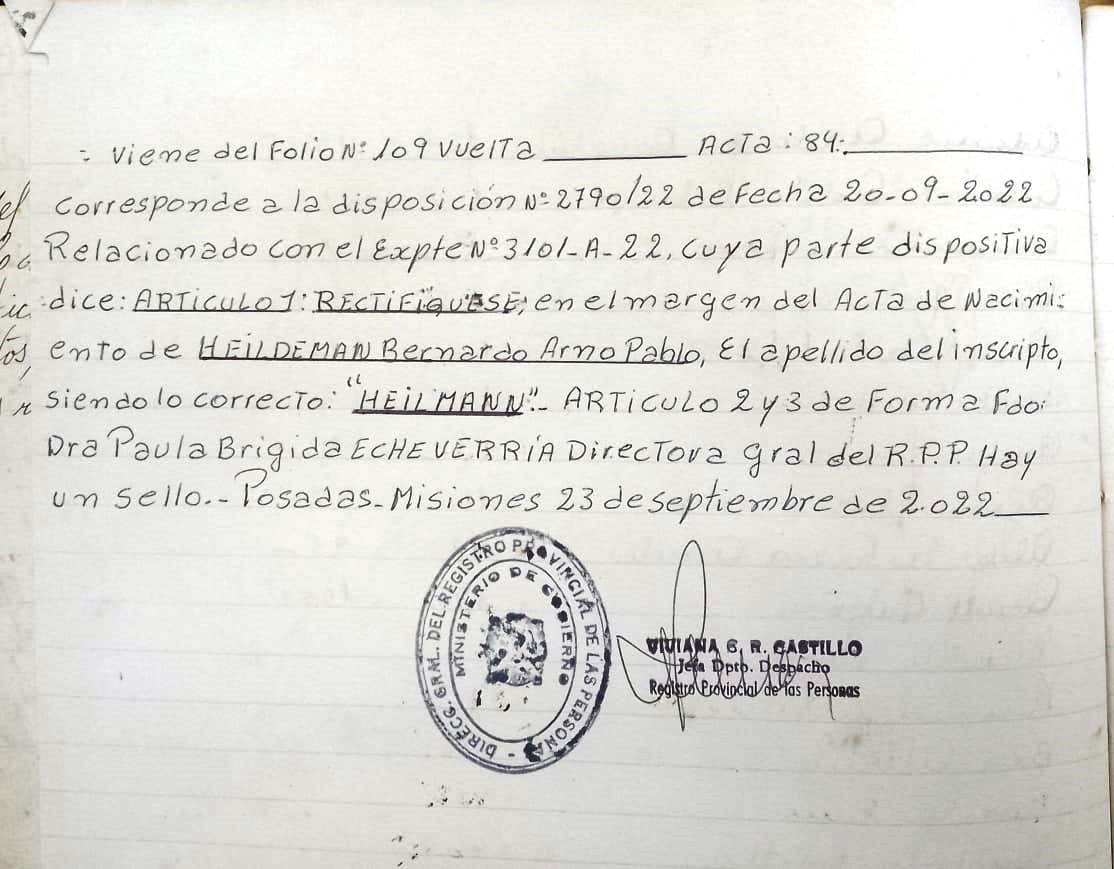 : Viene del Folio Nº 109 Vuelta ________ Acta: 84:________
Corresponde a la disposición Nº 2790/22 de Fecha 20-09-2022
Relacionado con el Expte Nº 3101-A-22, cuya parte dispositiva
dice: ARTICULO 1: RECTIFIQUESE; en el margen del Acta de Nacimi-
ento de HEILDEMAN Bernardo Arno Pablo, El apellido del inscripto,
siendo lo correcto: "HEILMANN".- ARTICULO 2 y 3 de Forma Fdo:
Dra Paula Brigida ECHEVERRÍA Directora gral del R.P.P. Hay
un sello.- Posadas-Misiones 23 de septiembre de 2.022___
DIRECC. GRAL. DEL REGISTRO PROVINCIAL DE LAS PERSONAS -
MINISTERIO DE GOBIERNO
VIVIANA G. R. CASTILLO
Jefa Dpto. Despacho
Registro Provincial de las Personas